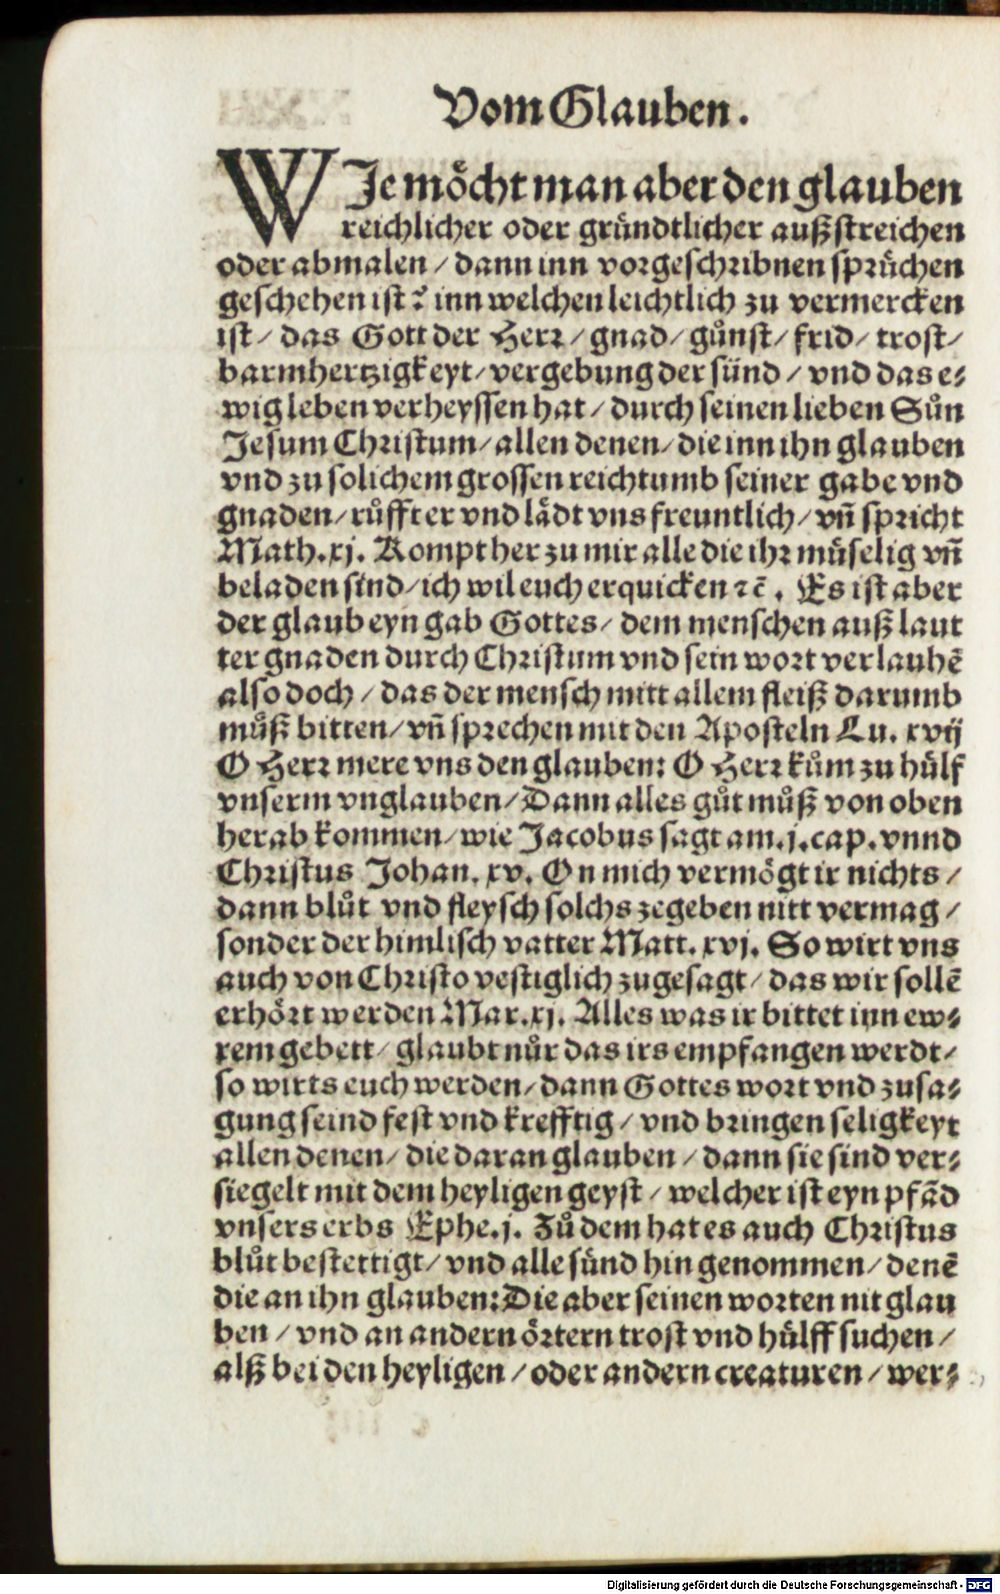 Vom Glauben.
WJe moͤcht man aber den glauben
reichlicher oder gruͤndtlicher außstreichen
oder abmalen / dann inn vorgeschribnen spruͤchen
geschehen ist? inn welchen leichtlich zu vermercken
ist / das Gott der Herr / gnad / guͤnst / frid / trost /
barmhertzigkeyt / vergebung der suͤnd / vnd das e-
wig leben verheyssen hat / durch seinen lieben Suͦn
Jesum Christum / allen denen / die inn ihn glauben
vnd zu solichem grossen reichtumb seiner gabe vnd
gnaden / ruͤfft er vnd laͤdt vns freuntlich / vñ spricht
Math. xj. Kompt her zu mir alle die ihr muͤselig vñ
beladen sind / ich wil euch erquicken ⁊c̃. Es ist aber
der glaub eyn gab Gottes / dem menschen auß laut
ter gnaden durch Christum vnd sein wort verlauhẽ
also doch / das der mensch mitt allem fleiß darumb
muͦß bitten / vñ sprechen mit den Aposteln Lu. xvij
O Herr mere vns den glauben: O Herr kuͦm zu huͤlf
vnserm vnglauben / Dann alles guͦt muͦß von oben
herab kommen / wie Jacobus sagt am. j. cap. vnnd
Christus Johan. xv. On mich vermoͤgt ir nichts /
dann bluͦt vnd fleysch solchs zegeben nitt vermag /
sonder der himlisch vatter Matt. xvj. So wirt vns
auch von Christo vestiglich zugesagt / das wir sollẽ
erhoͤrt werden Mar. xj. Alles was ir bittet inn ew-
rem gebett / glaubt nuͦr das irs empfangen werdt /
so wirts euch werden / dann Gottes wort vnd zusa-
gung seind fest vnd krefftig / vnd bringen seligkeyt
allen denen / die daran glauben / dann sie sind ver-
siegelt mit dem heyligen geyst / welcher ist eyn pfãd
vnsers erbs Ephe. j. Zuͦ dem hat es auch Christus
bluͦt bestettigt / vnd alle suͤnd hin genommen / denẽ
die an ihn glauben: Die aber seinen worten nit glau
ben / vnd an andern oͤrtern trost vnd huͤlff suchen /
alß bei den heyligen / oder andern creaturen / wer-
Digitalisierung gefördert durch die Deutsche Forschungsgemeinschaft - DFG